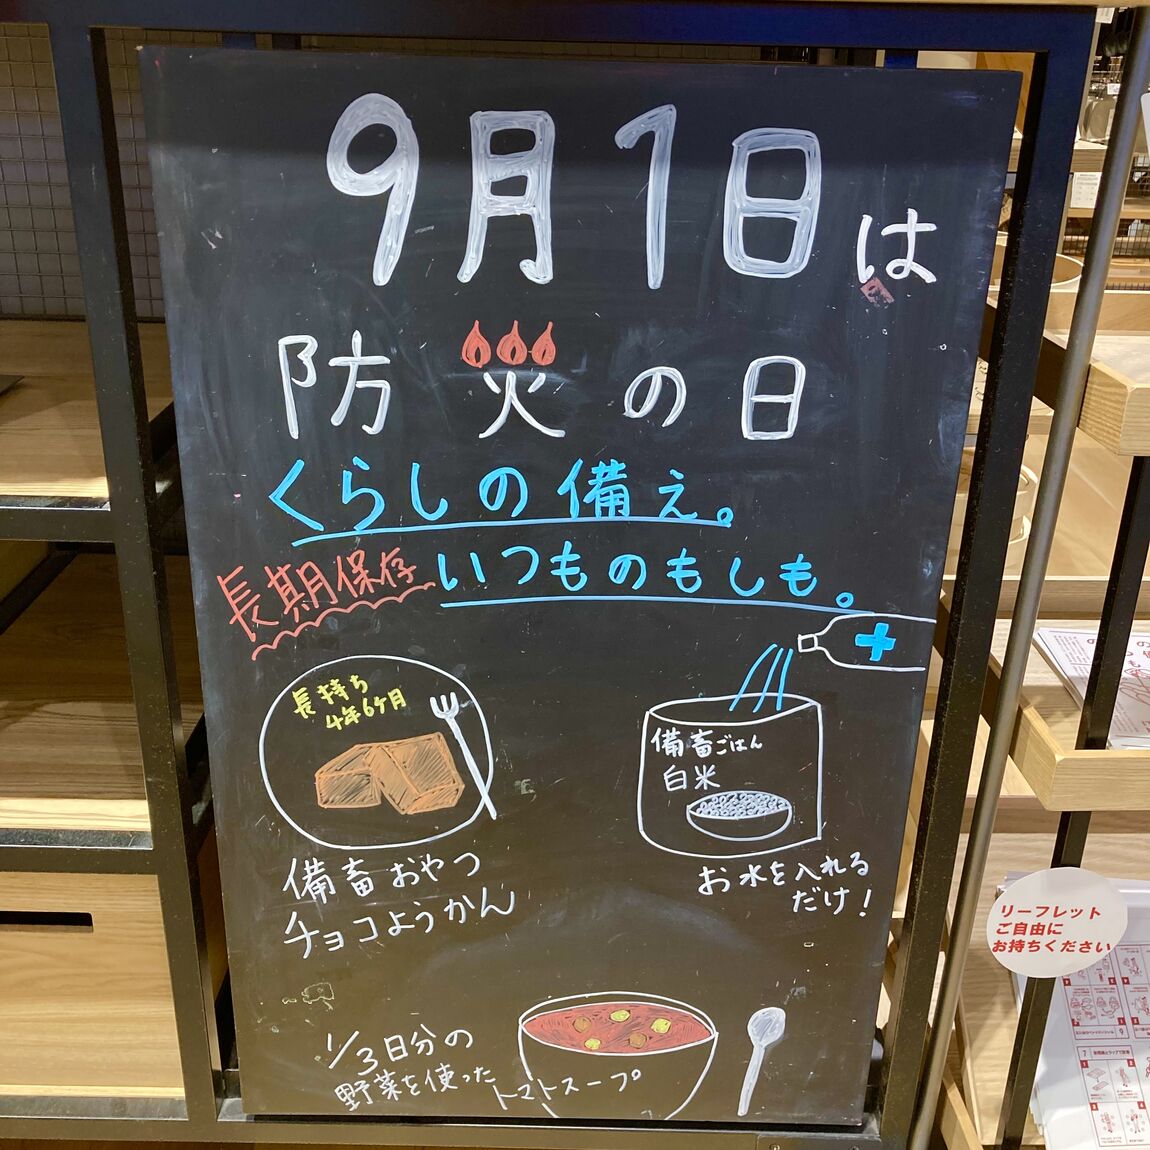 9月1日は
防災の日
くらしの備え。
いつものもしも。
長期保存
長持ち
4年6ケ月
備畜おやつ
チョコようかん
備畜ごはん
白米
お水を入れる
だけ!
1/3日分の
野菜を使った
トマトスープ
リーフレット
ご自由に
お持ちください